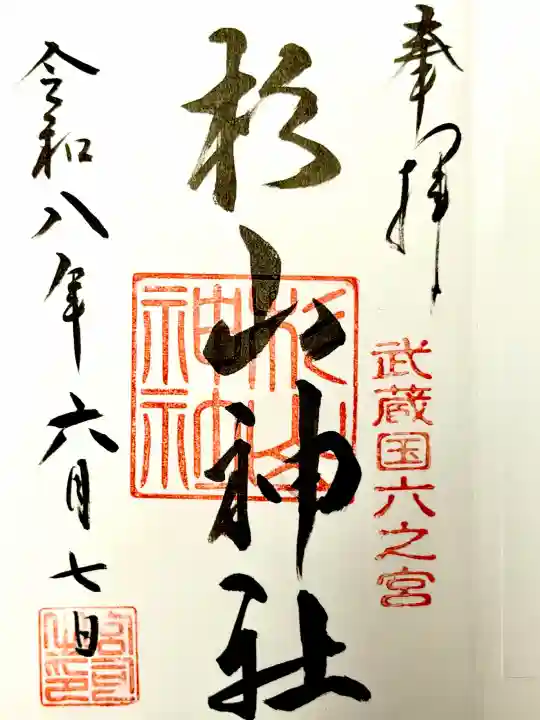 奉拝
武蔵国六之宮
杉山神社
杉山神社
令和八年六月七日
宮司之印